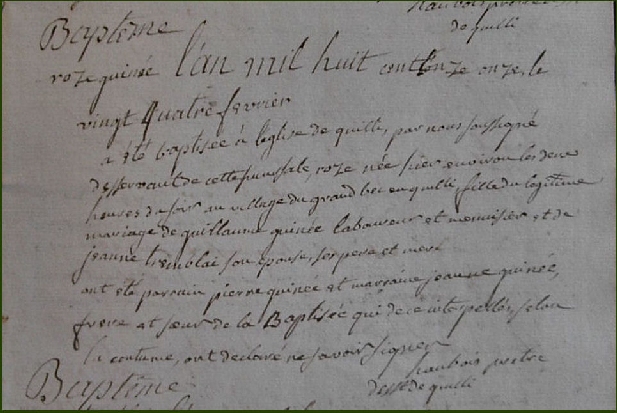 haubois prêtre
de quilli
Baptême
roze quinée l'an mil huit cent onze onze, le
vingt quatre fevrier
a été baptisée à l'eglise de quilli, par nous soussigné
desservant de cette succursale roze née hier environ les deux
heures du soir au village du grand bec en quilli, fille du legitime
mariage de guillaume quinée laboureur et menuisier et de
jeanne tremblai son epouse, ses pere et mere
ont été parrain pierre quinée et marraine jeanne quinée,
frere et sœur de la Baptisée qui de ce interpellés, selon
la coutume, ont declaré ne savoir signer
haubois prêtre
dess. de quilli
Baptême